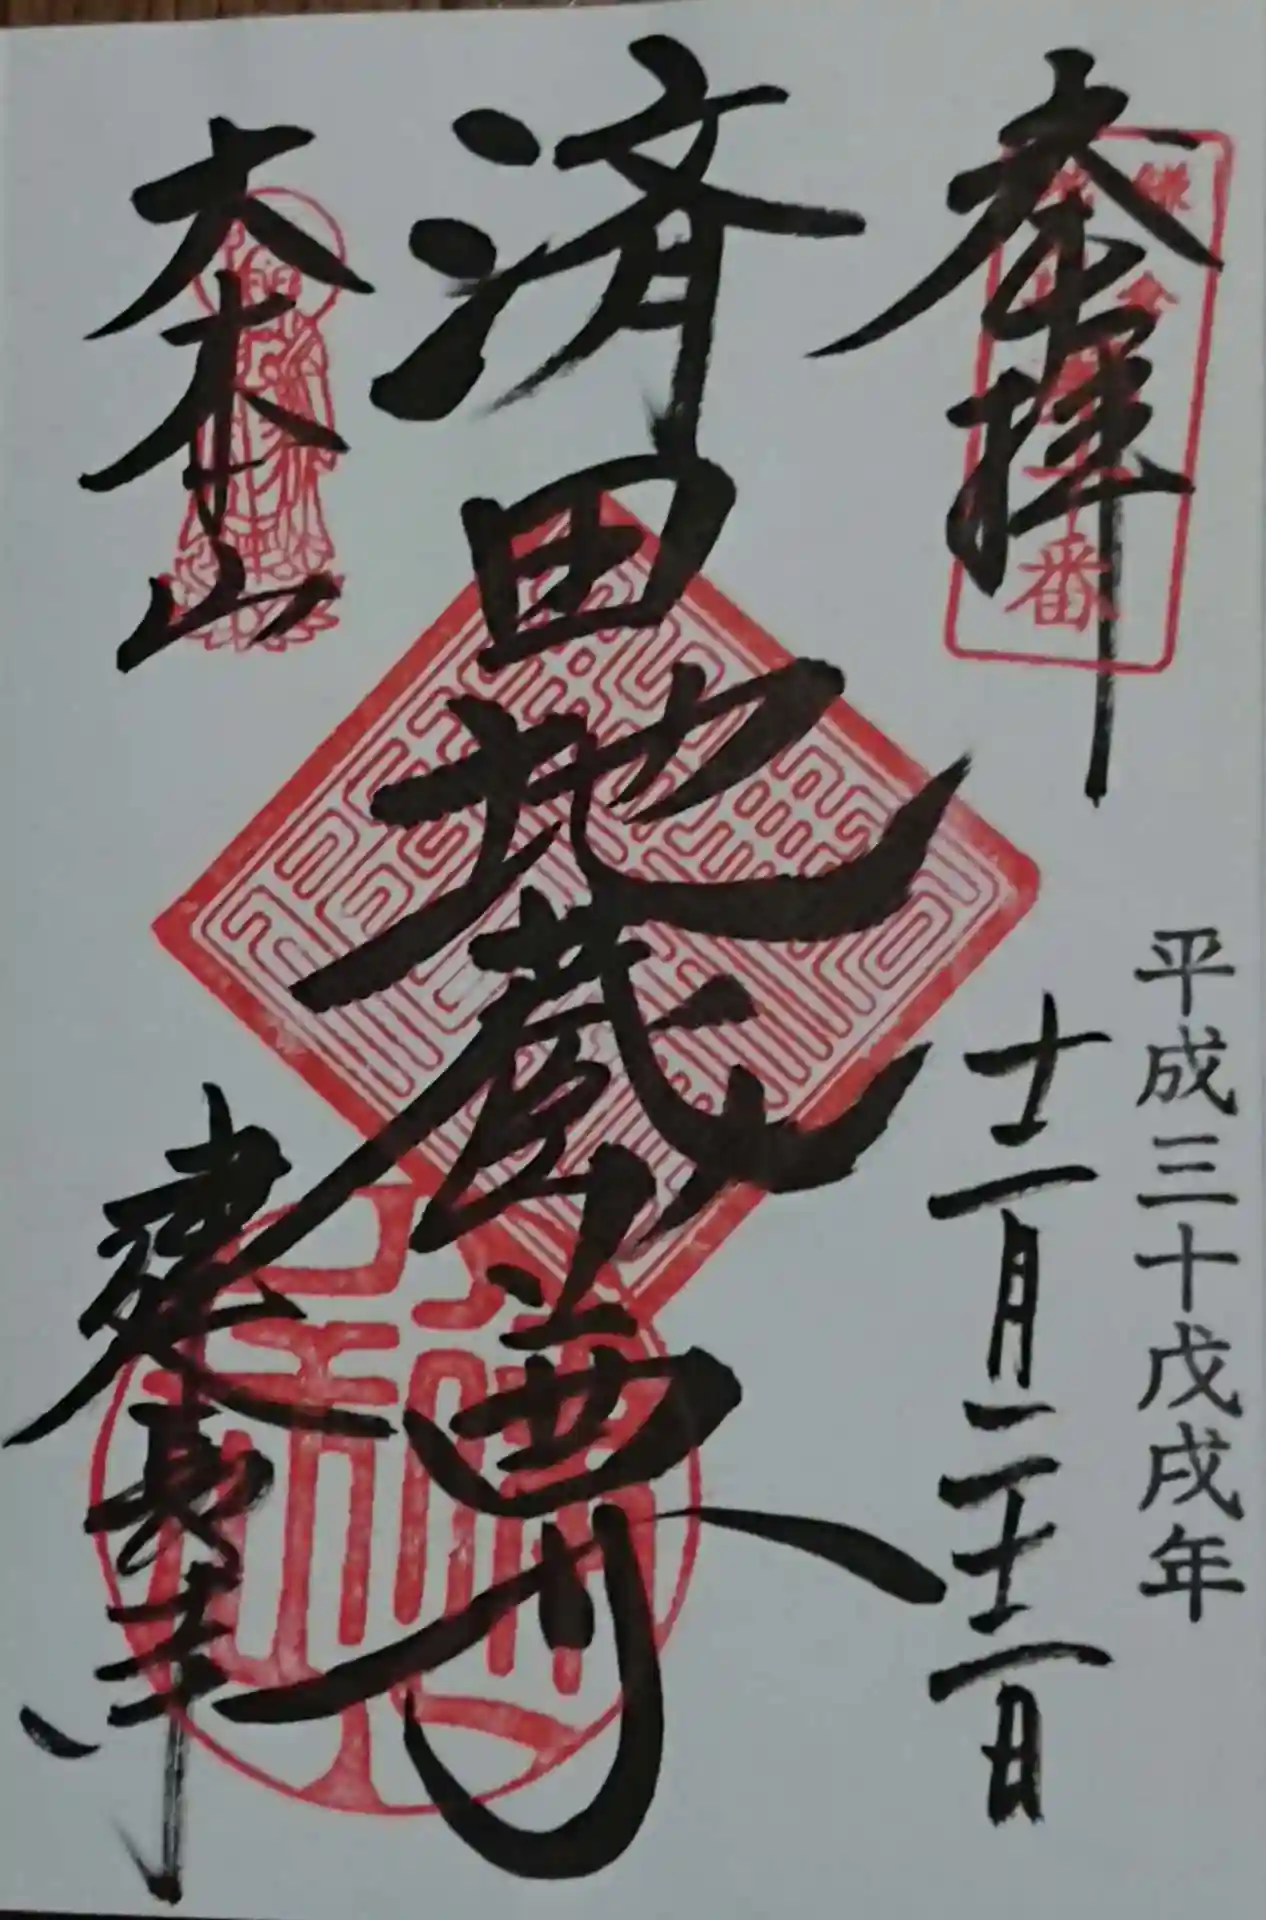 奉拝
平成三十戊戌年
十二月二十二日
済田地蔵尊
大本山
建長寺
番